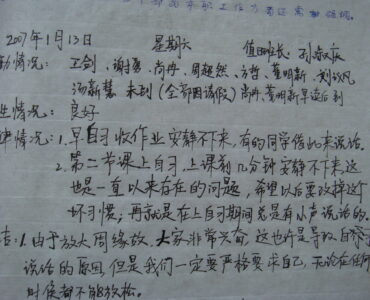 部的本职工作方面还需加强。
2007年1月13日 星期六 值班班长:孙
勤情况: 王剑、谢勇、尚冉、周超然、方哲、董明新、刘
汤新慧 未到(全部因请假)尚冉、董明新早读后到
生情况: 良好
律情况:1.早自习收作业安静不下来,有的同学借机来说话。
2.第二节课上自习,上课前几分钟安静不下来,这
也是一直以来存在的问题,希望以后要改掉这个
坏习惯;再就是在上自习期间总是有小声说话的。
结:1.由于放大周缘故,大家非常兴奋,这也许是导致自
说话的原因,但是我们一定要严格要求自己,无论在任何
时候都不能放松。